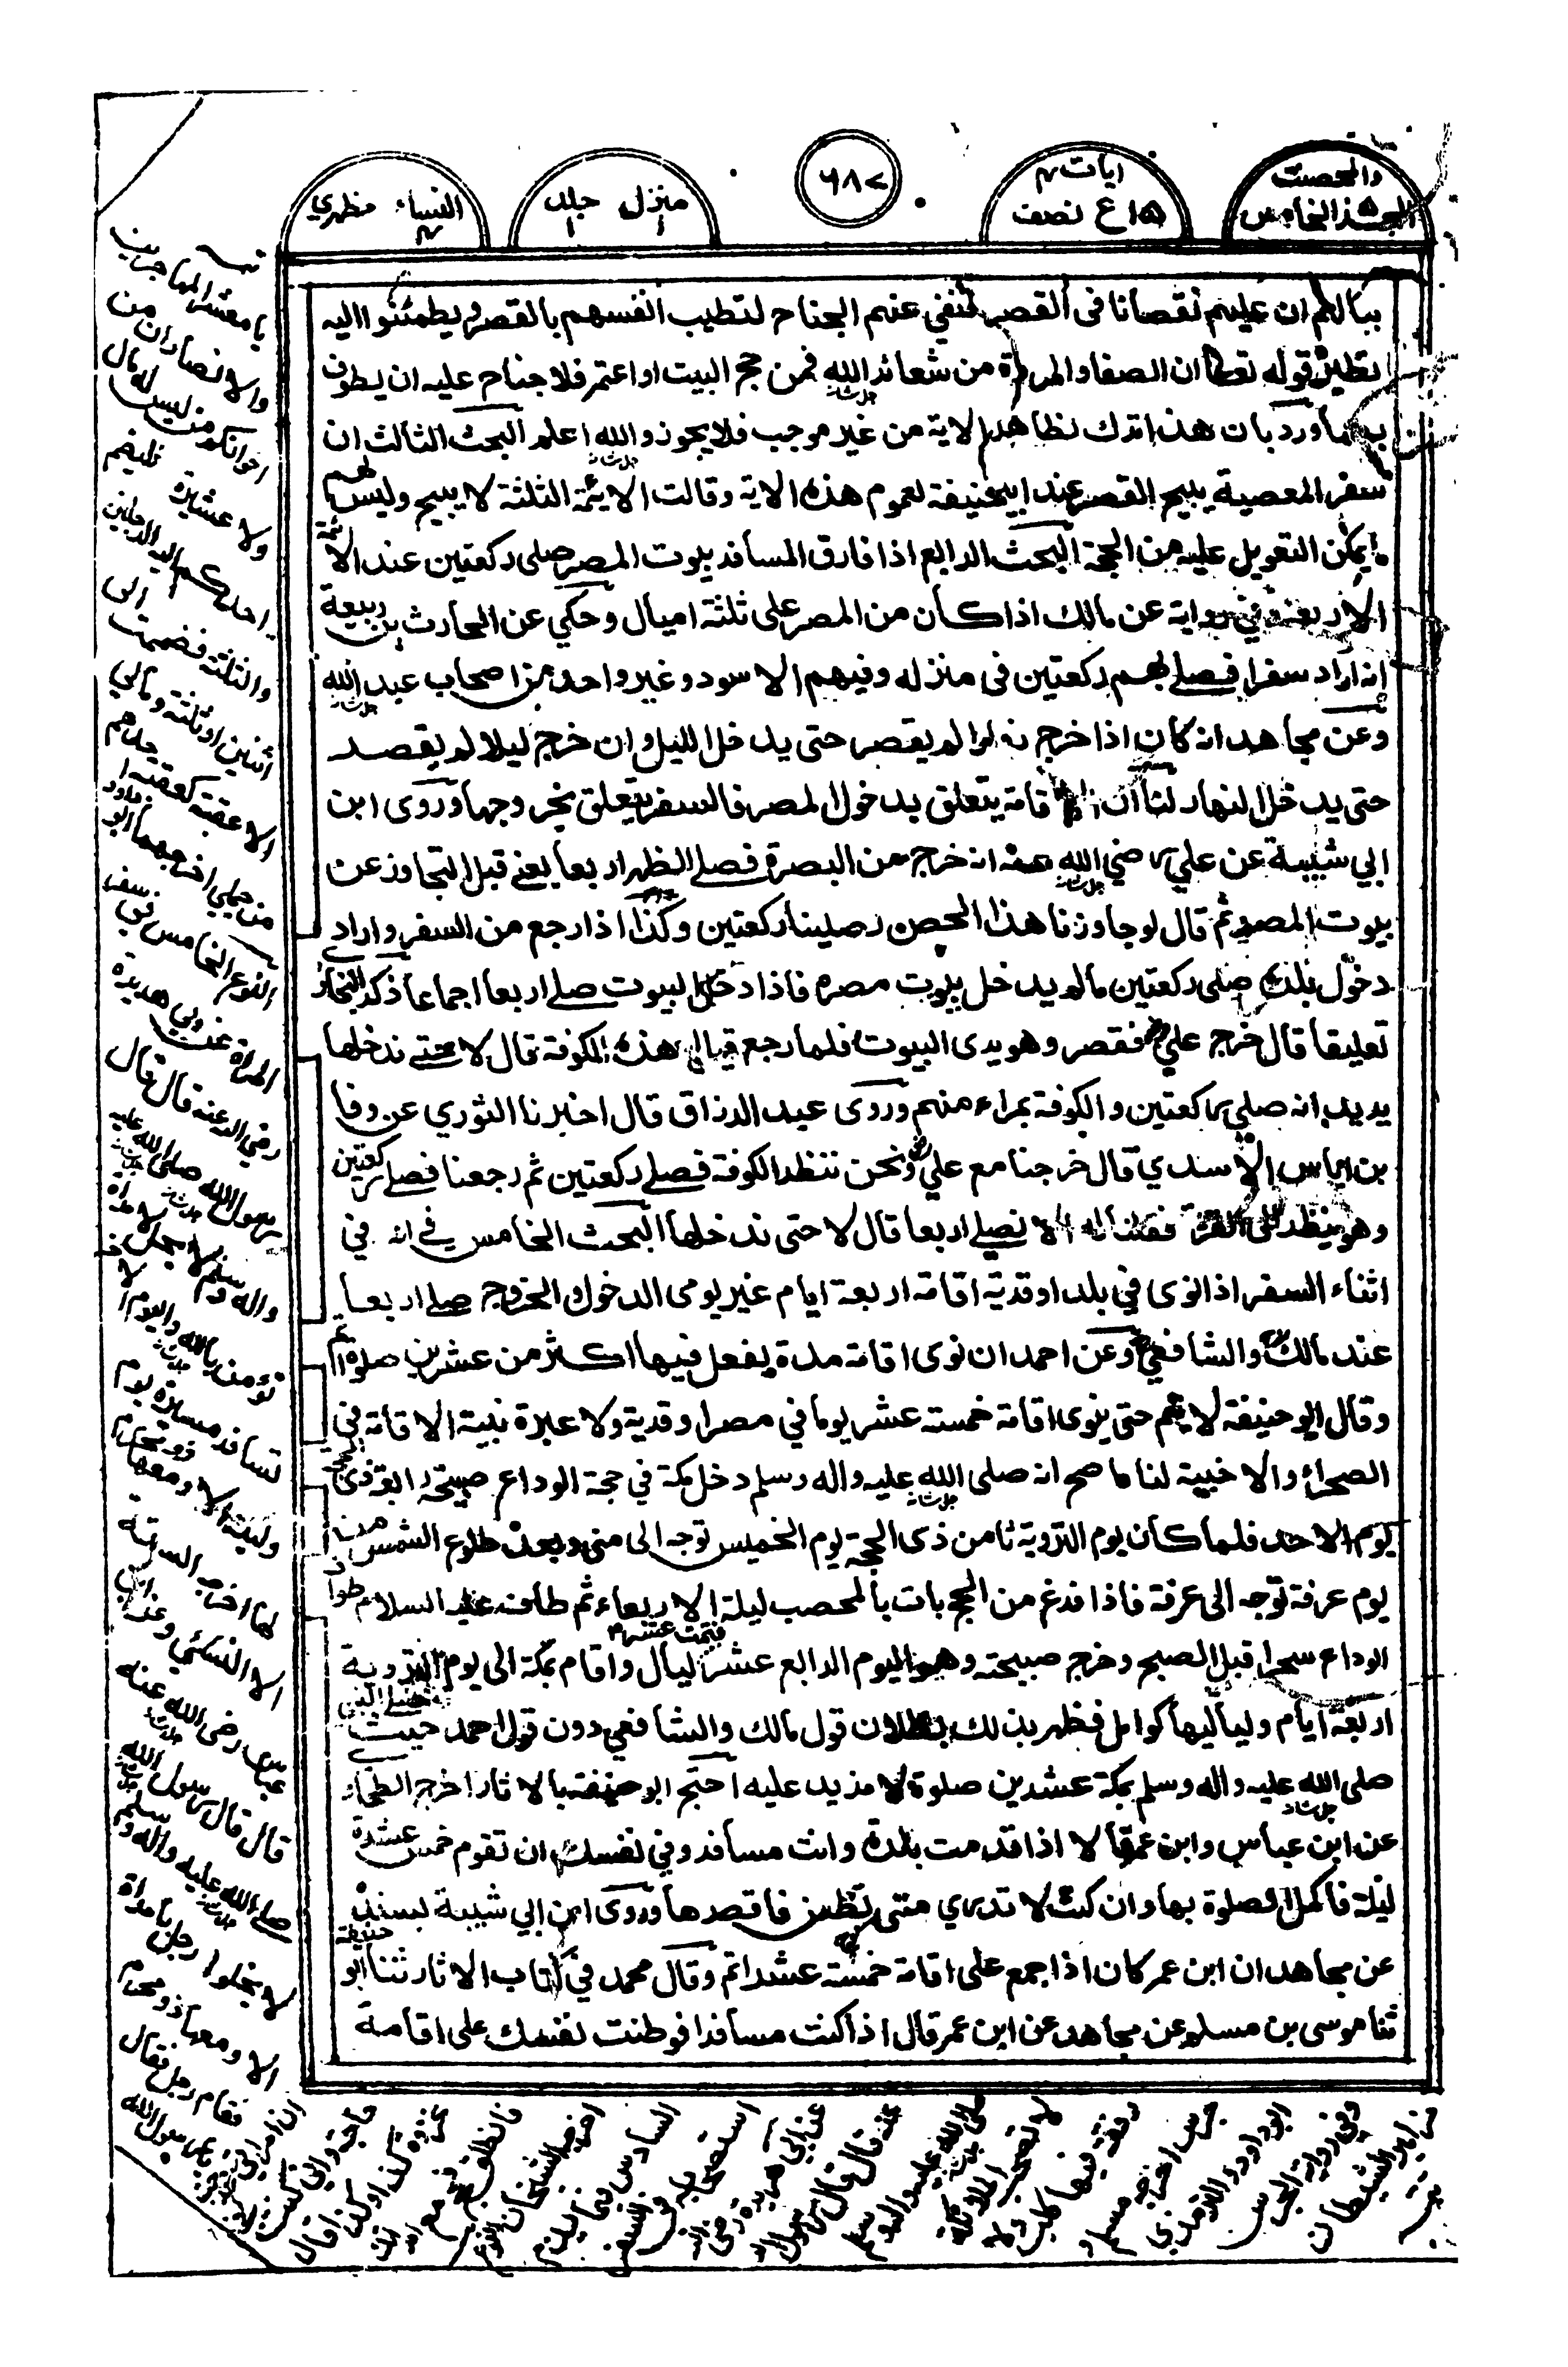 والمحصنت
الجزء الخامس
ايات ٤
١٥ع نصف
٦٨٧
منزل جلد
١ ١
النساء مظهري
٤
ببالهم ان عليهم نقصانا فى القصر فنفي عنهم الجناح لتطيب انفسهم بالقصر ويطمئنوا اليه
نظيره قوله تعالى ان الصفا والمروة من شعائر الله فمن حج البيت او اعتمر فلا جناح عليه ان يطوف
بهما ورد بان هذا ترك ظاهر الاية من غير موجب فلا يجوز والله اعلم البحث الثالث ان
سفر المعصية يبيح القصر عند ابيحنيفة لعموم هذه الاية وقالت الائمة الثلثة لا يبيح وليس لهم
ما يمكن التعويل عليه من الحجة البحث الرابع اذا فارق المسافر بيوت المصر صلى ركعتين عند الائمة
الاربعة وفي رواية عن مالك اذا كان من المصر على ثلثة اميال وحكي عن الحارث بن ربيعة
انه اراد سفرا فصلے بهم ركعتين فى منزله وفيهم الاسود وغير واحد من اصحاب عبد الله
وعن مجاهد انه كان اذا خرج نهارا لم يقصر حتى يدخل الليل وان خرج ليلا لم يقصر
حتى يدخل النهار لنا ان الاقامة يتعلق بدخول المصر فالسفر يتعلق بخروجها وروى ابن
ابي شيبة عن علي رضي الله عنه انه خرج من البصرة فصلے الظهر اربعا يعنے قبل التجاوز عن
بيوت المصر ثم قال لو جاوزنا هذا الحصن صلينا ركعتين وكذا اذا رجع من السفر واراد
دخول بلده صلى ركعتين مالم يدخل بيوت مصره فاذا دخل البيوت صلے اربعا اجماعا ذكر البخاري
تعليقا قال خرج علي فقصر وهو يرى البيوت فلما رجع قيل له هذه الكوفة قال لا حتے ندخلها
يريد انه صلى ركعتين والكوفة بمراء منهم وروى عبد الرزاق قال اخبرنا الثوري عن وفا
بن اياس الاسدي قال خرجنا مع علي ونحن ننظر الكوفة فصلے ركعتين ثم رجعنا فصلے ركعتين
وهو ينظر الى القرية فقلنا له الا نصلے اربعا قال لا حتى ندخلها البحث الخامس فے انه في
اثناء السفر اذا نوى في بلد او قرية اقامة اربعة ايام غير يومى الدخول والخروج صلے اربعا
عند مالك والشافعي وعن احمد ان نوى اقامة مدة يفعل فيها اكثر من عشرين صلوة اتم
وقال ابو حنيفة لا يتم حتى ينوى اقامة خمسة عشر يوما في مصر او قرية ولا عبرة بنية الاقامة في
الصحراء والاخبية لنا ما صح انه صلى الله عليه واله وسلم دخل مكة في حجة الوداع صبيحة رابع ذى الحجة
يوم الاحد فلما كان يوم التروية ثامن ذى الحجة يوم الخميس توجه الى منى وبعد طلوع الشمس من
يوم عرفة توجه الى عرفة فاذا فرغ من الحج بات بالمحصب ليلة الاربعاء ثم طاف عليه السلام طواف
الوداع سحرا قبل الصبح وخرج صبيحته وهو اليوم الرابع عشر فتمت عشر ليال واقام بمكة الى يوم التروية
اربعة ايام ولياليها كوامل فظهر بذلك بطلان قول مالك والشافعي دون قول احمد حيث صلے النبي
صلى الله عليه واله وسلم بمكة عشرين صلوة لا مزيد عليه احتج ابو حنيفة بالاثار اخرج الطحاوي
عن ابن عباس وابن عمر قالا اذا قدمت بلدة وانت مسافر وفي نفسك ان تقوم خمس عشرة
ليلة فاكمل الصلوة بها وان كنت لا تدري متى تظعن فاقصرها وروى ابن ابي شيبة بسنده
عن مجاهد ان ابن عمر كان اذا جمع على اقامة خمسة عشر اتم وقال محمد في كتاب الاثار ثنا ابو حنيفة
ثنا موسى بن مسلم عن مجاهد عن ابن عمر قال اذا كنت مسافرا فوطنت نفسك على اقامة
يا معشر المهاجرين
والانصار ان من
اخوانكم من ليس له مال
ولا عشيرة فليضم
احدكم اليه الرجلين
والثلثة فضممت الى
اثنين او ثلثة ومالي
الا عقبة كعقبة احدهم
من جملي اخرجهما ابو داود
النوع الخامس في سفر
المراة عن ابي هريرة
رضي الله عنه قال قال
رسول الله صلى الله عليه
واله وسلم لا يحل لامراة
تؤمن بالله واليوم الاخر
تسافر مسيرة يوم
وليلة الا ومعها ذو محرم
لها اخرجه الستة
الا النسائي وعن ابن
عباس رضى الله عنه
قال قال رسول الله
صلى الله عليه واله وسلم
لا يخلوا رجل بامراة
الا ومعها ذو محرم
فقام رجل فقال